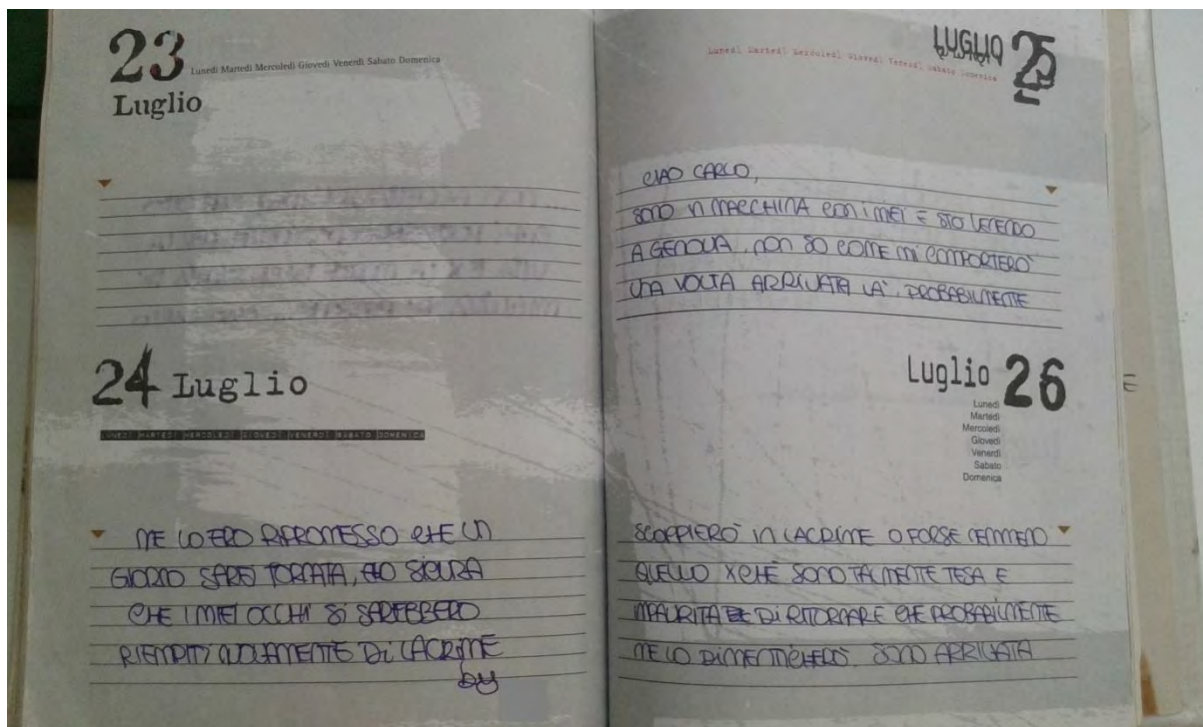 23
Lunedì Martedì Mercoledì Giovedì Venerdì Sabato Domenica
Luglio
24 Luglio
LUNEDÌ MARTEDÌ MERCOLEDÌ GIOVEDÌ VENERDÌ SABATO DOMENICA
ME LO ERO RIPROMESSO CHE UN
GIORNO SAREI TORNATA, ERO SICURA
CHE I MIEI OCCHI SI SAREBBERO
RIEMPITI NUOVAMENTE DI LACRIME
by
LUGLIO 25
Lunedì Martedì Mercoledì Giovedì Venerdì Sabato Domenica
CIAO CARLO,
SONO IN MACCHINA CON I MIEI E STO
A GENOVA. NON SO COME MI COMPORTERÒ
UNA VOLTA ARRIVATA LÀ. PROBABILMENTE
Luglio 26
Lunedì
Martedì
Mercoledì
Giovedì
Venerdì
Sabato
Domenica
SCOPPIERÒ IN LACRIME O FORSE NEMMENO
QUELLO XCHÈ SONO TALMENTE TESA E
IMPAURITA DI RITORNARE CHE PROBABILMENTE
ME LO DIMENTICHERÒ. SONO ARRIVATA
E